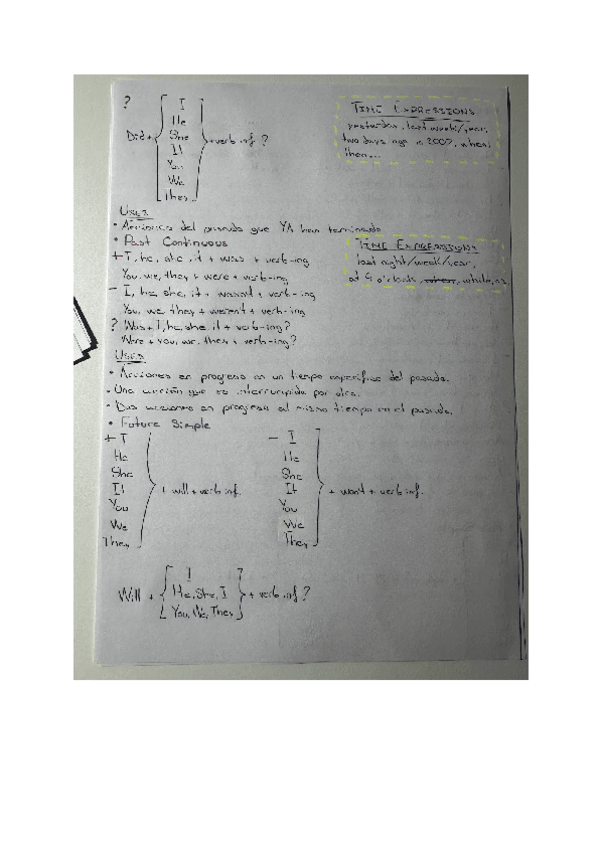 ?
Did + { I
He
She
It
You
We
They } + verb inf. ?
TIME EXPRESSIONS
yesterday, last week/year,
two days ago in 2007, when,
then...
USES
• Acciones del pasado que YA han terminado
• Past Continuous
+ I, he, she, it + was + verb-ing
You, we, they + were + verb-ing
- I, he, she, it + wasn't + verb-ing
You, we, they + weren't + verb-ing
? Was + I, he, she, it + verb-ing?
Were + you, we, they + verb-ing?
TIME EXPRESSIONS
last night/week/year,
at 4 o'clock, when, while, as
USES
• Acciones en progreso en un tiempo específico del pasado.
• Una acción que es interrumpida por otra.
• Dos acciones en progreso al mismo tiempo en el pasado.
• Future Simple
+ I
He
She
It
You
We
They } + will + verb inf.
- I
He
She
It
You
We
They } + won't + verb inf.
Will + { I
He, She, I
You, We, They } + verb inf?